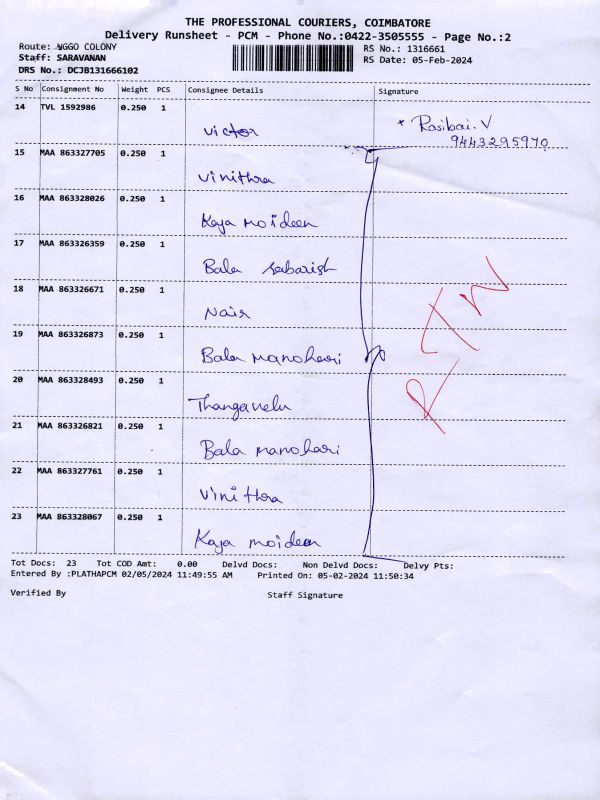 THE PROFESSIONAL COURIERS, COIMBATORE
Delivery Runsheet - PCM - Phone No.:0422-3505555 - Page No.:2
Route: NGGO COLONY
RS No.: 1316661
Staff: SARAVANAN
RS Date: 05-Feb-2024
DRS No.: DCJB131666102
S No Consignment No Weight PCS Consignee Details Signature
14 TVL 1592986 0.250 1 Victor * Rasibai.V
9443295970
15 MAA 863327705 0.250 1 Vinithra
16 MAA 863328026 0.250 1 Kaja moideen
17 MAA 863326359 0.250 1 Bala sabarish
18 MAA 863326671 0.250 1 Nair
19 MAA 863326873 0.250 1 Bala manohari
20 MAA 863328493 0.250 1 Thangavelu
21 MAA 863326821 0.250 1 Bala manohari
22 MAA 863327761 0.250 1 Vinithra
23 MAA 863328067 0.250 1 Kaja moideen
RTN
Tot Docs: 23 Tot COD Amt: 0.00 Delvd Docs: Non Delvd Docs: Delvy Pts:
Entered By :PLATHAPCM 02/05/2024 11:49:55 AM Printed On: 05-02-2024 11:50:34
Verified By Staff Signature